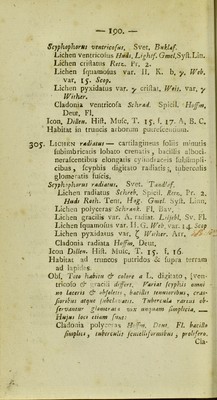 — 190. —
Scyphophorus ventricosus, Svet. Buklaf.
Lichen ventricosus Huds, Lightf. Gmel. Syst. Lin.
Lichen cristatus Retz. Pr. 2.
Lichen squamosus var. H. K. b, γ, Web.
var, 15. Scop.
Lichen pyxidatus var. γ cristat, Weis. var. γ
Wither.
Cladonia ventricosa Schrad. Spicil. Hoffm,
Deut, Fl.
Icon, Dillen. Hist, Musc, T. 15, f. 17. A, B. C.
Habitat in truncis arborum putrescentium.
305. LICHEN radiatus — cartilagineus foliis minutis
subimbricatis lobato crenatis, bacillis albotu
nerascentibus elongatis cylindraceis subsimpli-
cibus, scyphis digitato radiatis, tuberculis
glomeratis fuscis.
Scyphophorus radiatus, Svet. Trattlaf.
Lichen radiatus Schreb, Spicil. Retz. Pr. 2.
Huds Roth. Tent. Hag. Gmel. Syst. Linn,
Lichen polyceras Schrank. Fl. Bav.
Lichen gracilis var. A. radiat. Leijebl. Sv. Fl.
Lichen squamosus var. H. G. Web, var. 14. Scop
Lichen pyxidatus var, ζ Wither. Arr,
Cladonia radiata Hoffm, Deut,
Icon Dillen. Hist. Musc, T. 15. f, 16.
Habitat ad truncos putridos & supra terram
ad lapides.
Obs, Toto habitu & colore a L. digitato, [ven-
tricoso & gracili differt. Variat scyphis omni-
no laceris & obsoletis, bacillis tenuioribus, cras-
sioribus atque subclavatis. Tubercula rarius ob-
servantur glomerata vix unquam simplicia, —
Hujus loci etiam sunt:
Cladonia polyceras Hoffm, Deut. Fl. bacillo
simplici, tuberculis scutelliformibus, prolifero.
Cla-